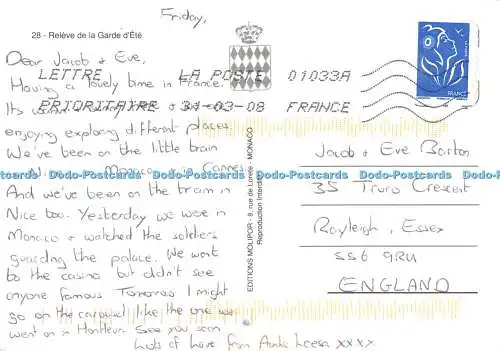 Friday,
28 - Relève de la Garde d'Été
Dear Jacob & Eve,
Having a lovely time in France.
LETTRE LA POSTE 01033A
PRIORITAIRE 31-03-08 FRANCE
enjoying exploring different places.
We've been on the little train
in Monaco in Cannes.
And we've been on the tram in
Nice too. Yesterday we were in
Monaco & watched the soldiers
guarding the palace. We went
to the casino but didn't see
anyone famous Tomorrow I might
go on the carousel like the one we
went on in Honfleur. See you soon
Lots of love from Auntie Leesa xxxx
EDITIONS MOLIPOR - 8, rue de Lorète - MONACO
Reproduction Interdite
FRANCE
Jacob & Eve Barton
35 Truro Crescent
Rayleigh, Essex
SS6 9RU
ENGLAND
Dodo-Postcards Dodo-Postcards Dodo-Postcards Dodo-Postcards Dodo-Postcards Dodo-Postcards